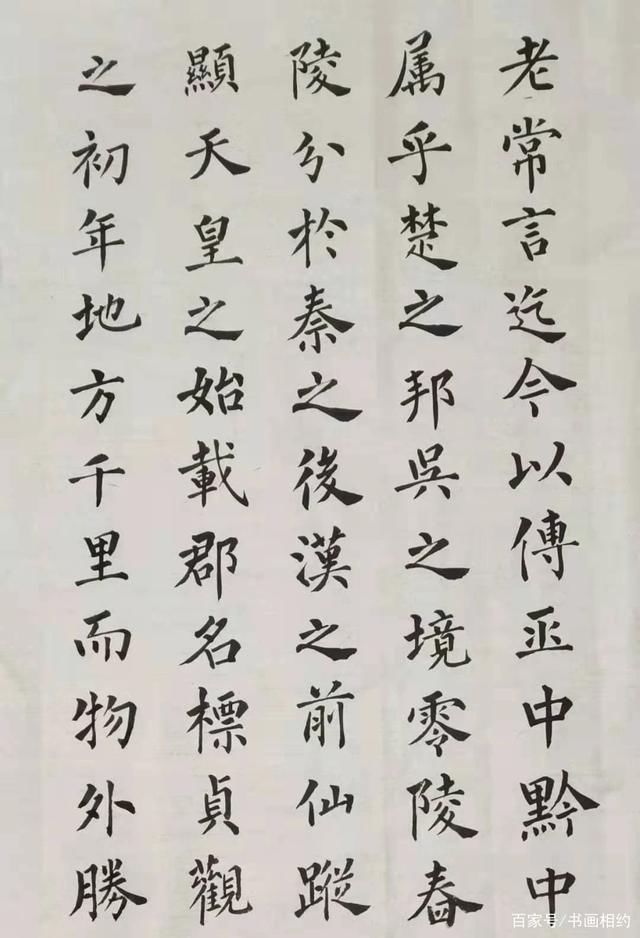 老常言迄今以傳巫中黔中
属乎楚之邦吳之境零陵春
陵分於秦之後漢之前仙蹤
顯天皇之始載郡名標貞觀
之初年地方千里而物外勝
百家号/书画相约